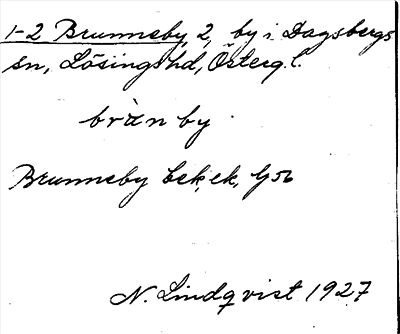 1-2 Brunneby, 2, by i Dagsbergs
sn, Lösings hd, Österg. l.
brànby
Brunneby bek, ek, G 56
N. Lindqvist 1927